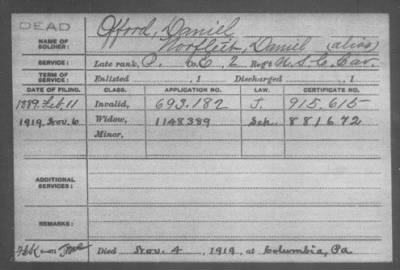 DEAD
NAME OF SOLDIER: Offord, Daniel
Norfleet, Daniel (alias)
SERVICE: Late rank, P. Co. C, 2 Reg't U.S.C. Cav.
TERM OF SERVICE: Enlisted , 1 Discharged , 1
DATE OF FILING. CLASS. APPLICATION NO. LAW. CERTIFICATE NO.
1889 Feb. 11 Invalid, 693.182 J. 915.615
1919, Nov. 6 Widow, 1148389 Sch. 881672
Minor,
ADDITIONAL SERVICES:
REMARKS:
Died Nov. 4, 1919, at Columbia, Pa